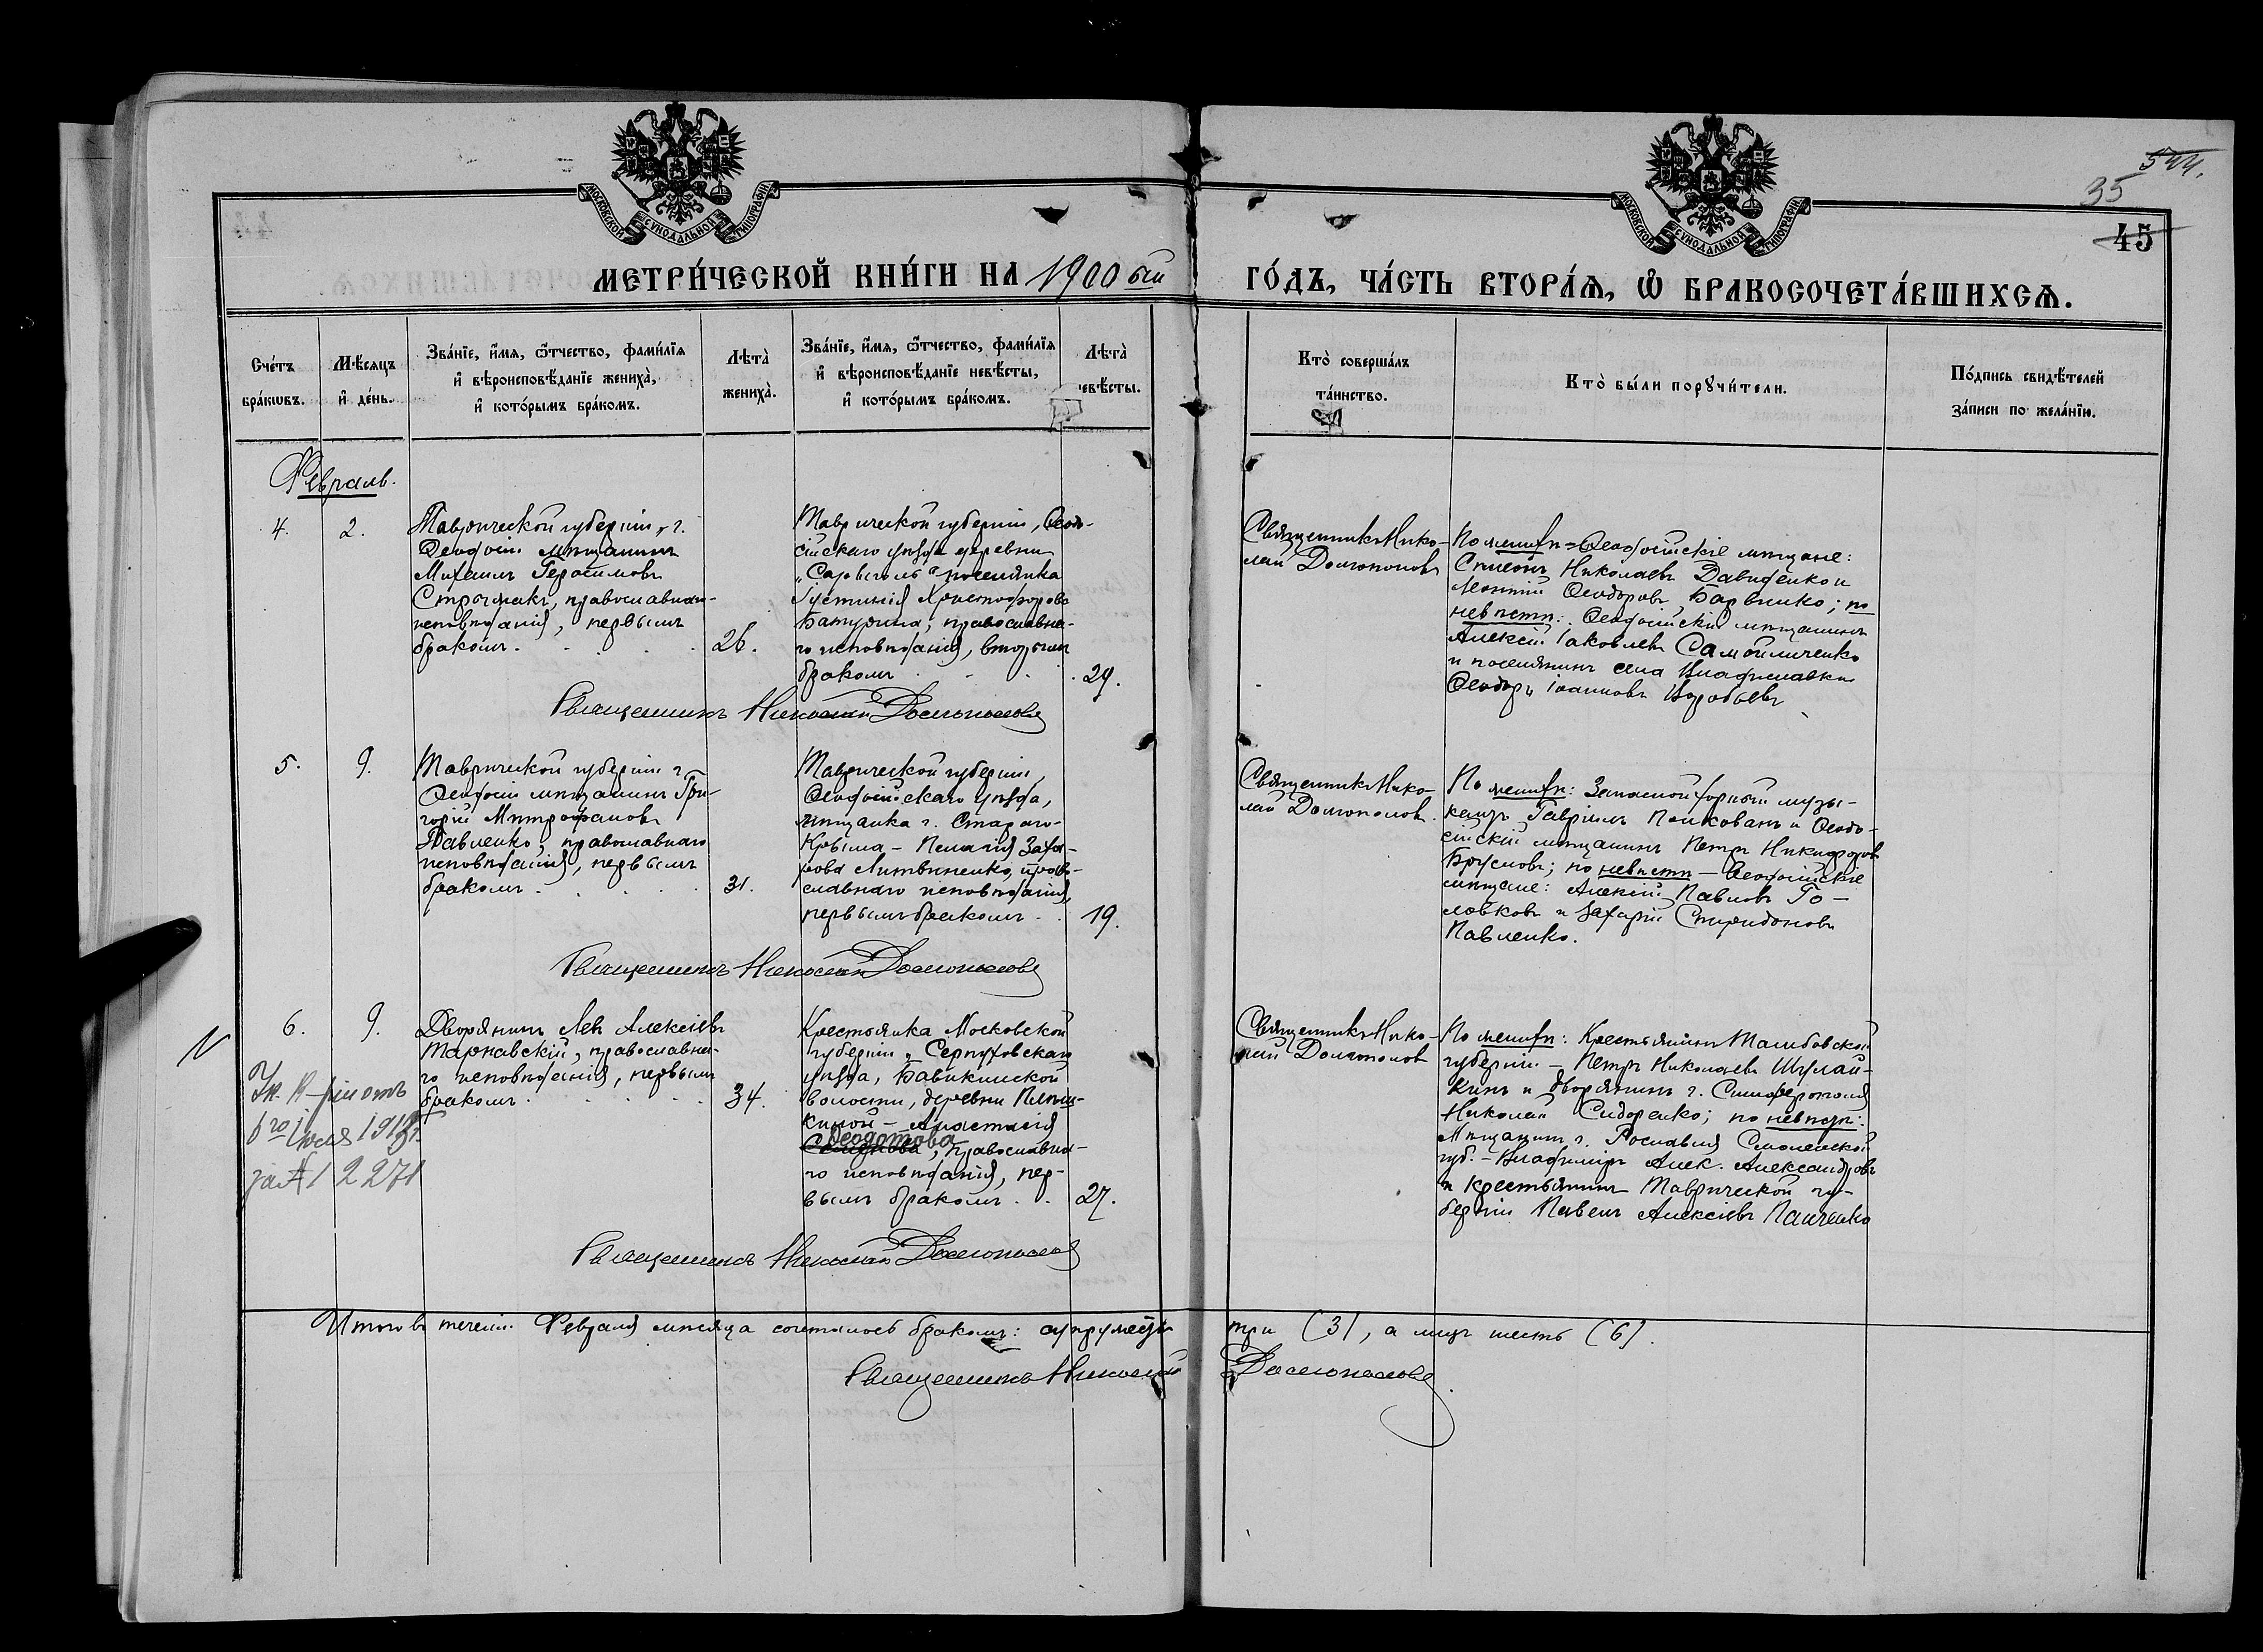 МОСКОВСКОЙ СѴНОДАЛЬНОЙ ТИПОГРАФІИ
МОСКОВСКОЙ СѴНОДАЛЬНОЙ ТИПОГРАФІИ
544.
35
45
МЕТРИ́ЧЕСКОЙ КНИ́ГИ НА 1900 ый
ГО́ДЪ, ЧА́СТЬ ВТОРА́Ѧ, Ѽ БРАКОСОЧЕТА́ВШИХСѦ.
Сче́тъ
бра́кѡвъ.
Мѣ́сяцъ
и҆ де́нь.
Зва́нїе, и҆́мѧ, ѻ҆́тчество, фами́лїѧ
и҆ вѣроисповѣ́данїе жениха̀,
и҆ кото́рымъ бра́комъ.
Лѣта̀
жениха̀.
Зва́нїе, и҆́мѧ, ѻ҆́тчество, фами́лїѧ
и҆ вѣроисповѣ́данїе невѣ́сты,
и҆ кото́рымъ бра́комъ.
Лѣта̀
невѣ́сты.
Кто̀ соверша́лъ
та́инство.
Кто̀ бы́ли порꙋчи́тели.
По́дпись свидѣ́телей
за́писи по жела́нїю.
Февраль.
4.
2.
Таврической губерніи, г.
Ѳеодосіи мѣщанинъ
Михаилъ Герасимовъ
православна-
исповѣданія, первымъ
бракомъ.
26.
Таврической губерніи, Ѳеодо-
сійскаго уѣзда деревни
поселянка
Іустинія Христофорова
Батурина, православна-
го исповѣданія, вторымъ
бракомъ
29.
Священникъ Нико-
лай Долгополовъ
По женихѣ = Ѳеодосійскіе мѣщане:
Симеонъ Николаевъ Давиденко и
Леонтій Ѳеодоровъ Барвенко; по
невѣстѣ: Ѳеодосійскій мѣщанинъ
Алексій Іаковлевъ Самойличенко
и поселянинъ села Владиславки
Ѳеодоръ Іоанновъ Воробьевъ
Священникъ Николай Долгополовъ
5.
9.
Таврической губерніи г.
Ѳеодосіи мѣщанинъ Гри-
горій Митрофановъ
Павленко, православнаго
исповѣданія, первымъ
бракомъ
31.
Таврической губерніи,
Ѳеодосійскаго уѣзда,
мѣщанка г. Стараго-
Крыма - Пелагія Заха-
рова Литвиненко, право-
славнаго исповѣданія,
первымъ бракомъ
19.
Священникъ Нико-
лай Долгополовъ.
По женихѣ: Запасной горный музы-
кантъ Гавріилъ и Ѳеодо-
сійскій мѣщанинъ Петръ Никифоровъ
Брусновъ; по невѣстѣ - Ѳеодосійскіе
мѣщане: Алексій Павловъ Го-
ловковъ и Захарій Спиридоновъ
Павленко.
Священникъ Николай Долгополовъ
6.
9.
Ук. К-ріи отъ
6го Іюля 1913г.
за № 12271
Дворянинъ Левъ Алексіевъ
Тарнавскій, православна-
го исповѣданія, первымъ
бракомъ
34.
Крестьянка Московской
губерніи, Серпуховскаго
уѣзда, Бавыкинской
волости, деревни
Анастасія
Ѳеодотова
православна-
го исповѣданія, пер-
вымъ бракомъ
27.
Священникъ Нико-
лай Долгополовъ
По женихѣ: Крестьянинъ Тамбовской
губерніи - Петръ Николаевъ Шулай-
кинъ и дворянинъ г. Симферополя
Николай Сидоренко; по невѣстѣ:
Мѣщанинъ г. Рославля Смоленской
губ. - Владиміръ Алек. Александровъ
и крестьянинъ Таврической гу-
берніи Павелъ Алексіевъ Панченко
Священникъ Николай Долгополовъ
Итого въ теченіи Февраля мѣсяца сочеталось бракомъ: супружествъ три (3), а лицъ шесть (6).
Священникъ Николай Долгополовъ